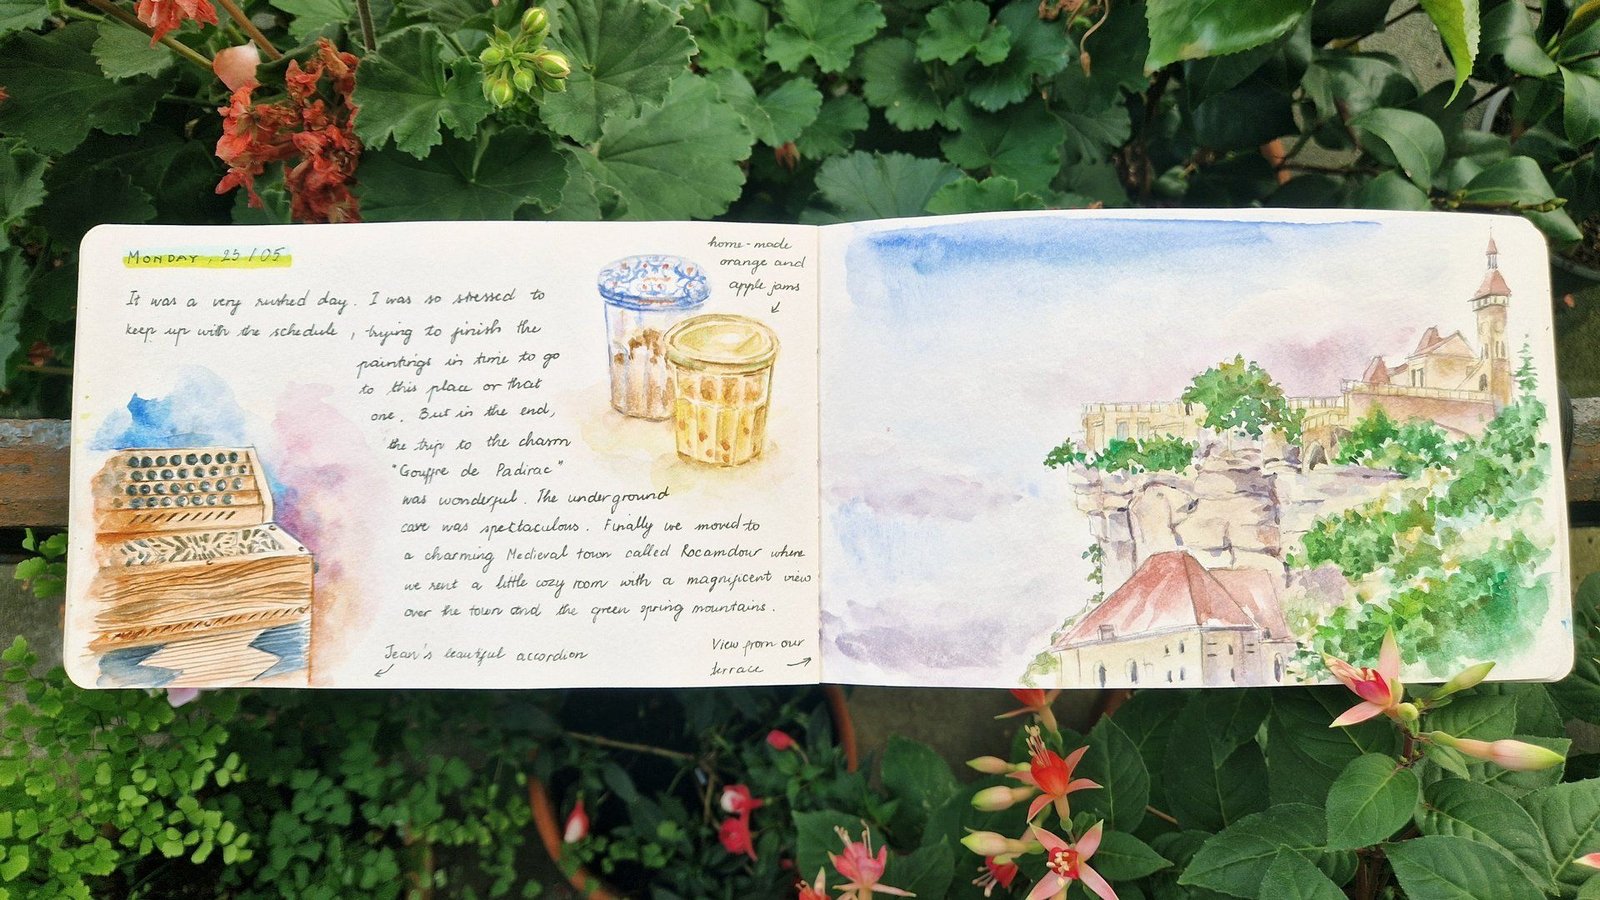 MONDAY, 25/05
It was a very rushed day. I was so stressed to
keep up with the schedule, trying to finish the
paintings in time to go
to this place or that
one. But in the end,
the trip to the chasm
"Gouffre de Padirac"
was wonderful. The underground
cave was spectaculous. Finally we moved to
a charming Medieval town called Rocamdour where
we rent a little cozy room with a magnificent view
over the town and the green spring mountains.
home-made
orange and
apple jams
Jean's beautiful accordion
View from our
terrace